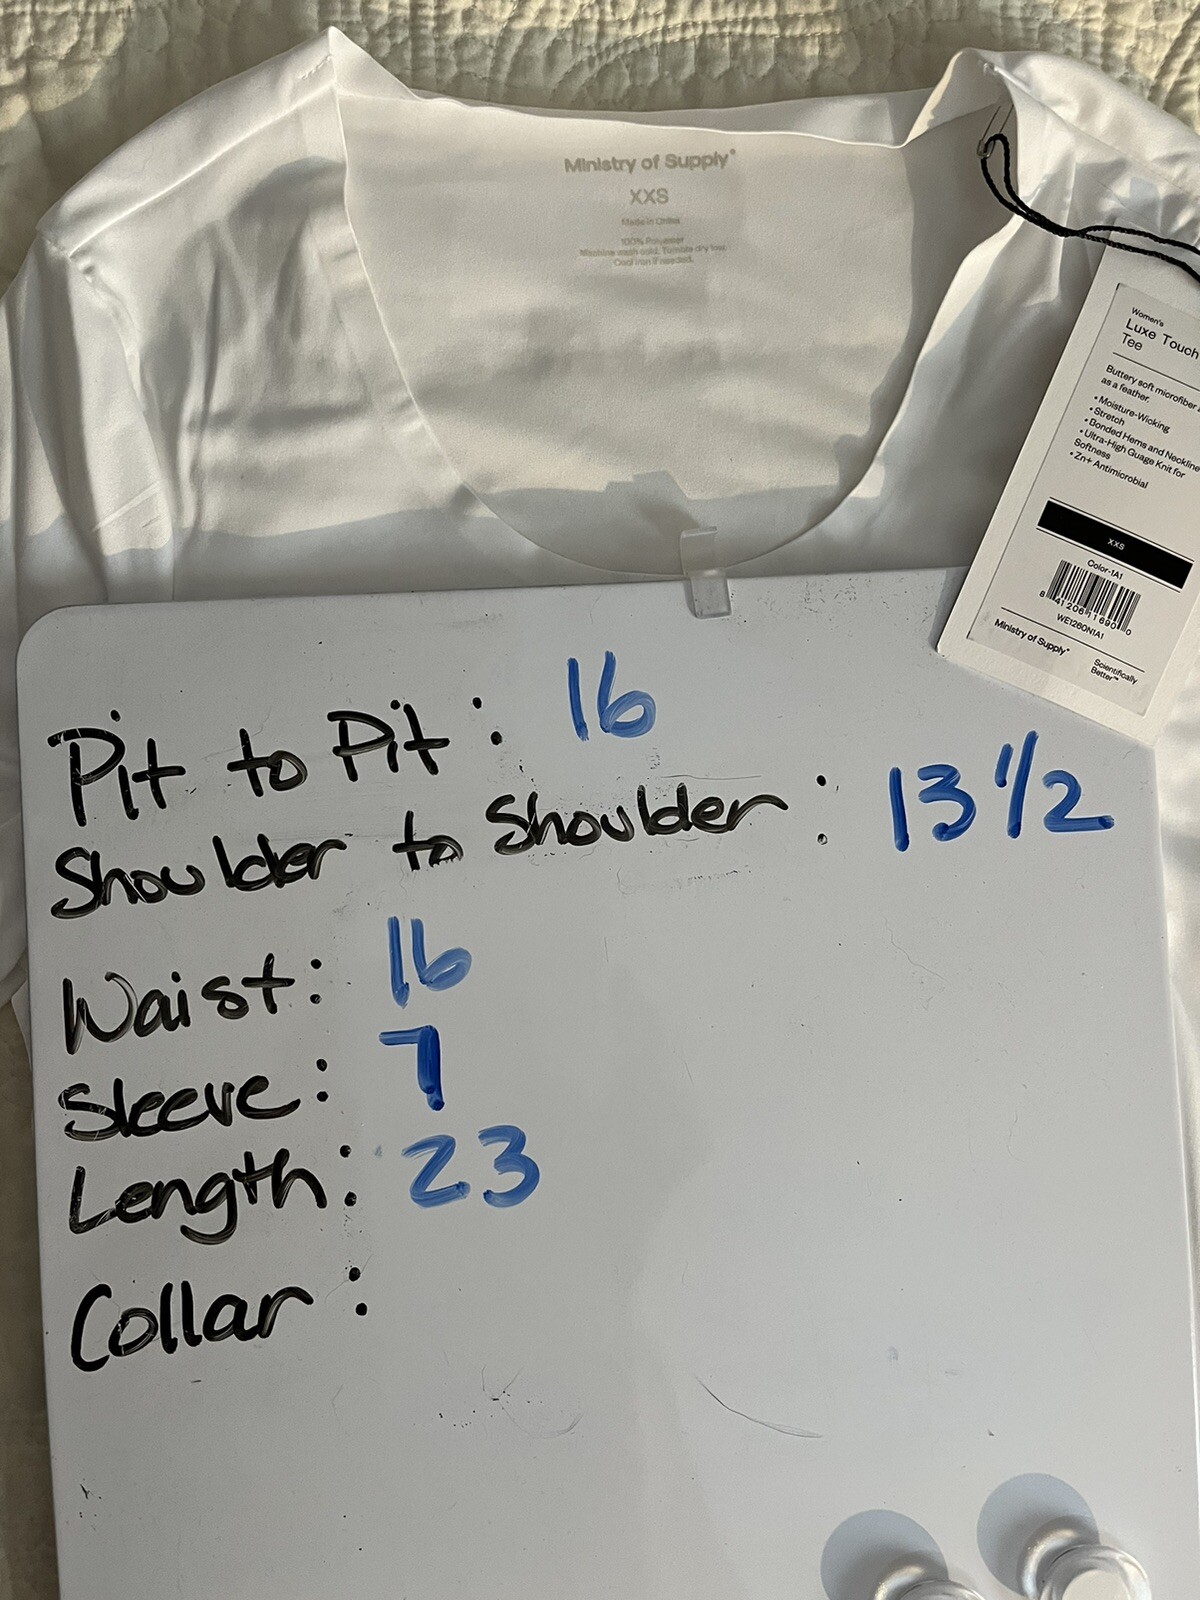 Ministry of Supply®
XXS
Made in China
100% Polyester
Machine wash cold. Tumble dry low.
Cool iron if needed.
Women's
Luxe Touch
Tee
Buttery soft microfiber
as a feather.
• Moisture-Wicking
• Stretch
• Bonded Hems and Neckline
• Ultra-High Guage Knit for
Softness
• Zn+ Antimicrobial
XXS
Color-1A1
8 41206 11690 0
WE1260N1A1
Ministry of Supply®
Scientifically
Better™
Pit to Pit: 16
Shoulder to Shoulder: 13 1/2
Waist: 16
Sleeve: 7
Length: 23
Collar: